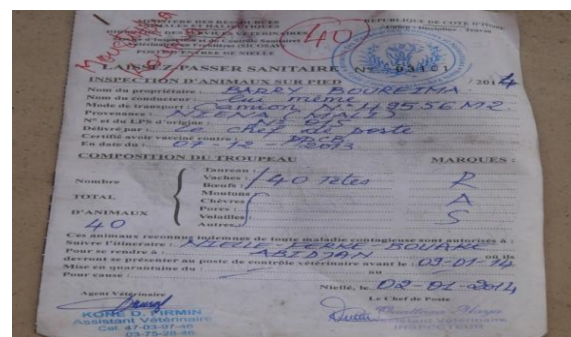 MINISTERE DES RESSOURCES
ANIMALES ET HALIEUTIQUES
REPUBLIQUE DE COTE D'IVOIRE
DES SERVICES VETERINAIRES
Travail
40
POSTE D'ENTREE DE NIELLE
LAISSEZ-PASSER SANITAIRE N°
INSPECTION D'ANIMAUX SUR PIED /2014
Nom du propriétaire : BARRY BOUREIMA
Nom du conducteur : Lui même
Mode de transport : Camion N° 49556 M2
Provenance : (MALI)
N° et du LPS d'origine : N°
Délivré par : Le chef de poste
Certifié avoir vacciné contre :
En date du : 07-12-2013
COMPOSITION DU TROUPEAU MARQUES :
Taureau :
Vaches : 40 Têtes
Bœufs :
Nombre
TOTAL
D'ANIMAUX
40
Moutons :
Chèvres :
Porcs :
Volailles :
Autres :
R
A
S
Ces animaux reconnus indemnes de toute maladie contagieuse sont autorisés à :
Suivre l'itinéraire : NIELLE - FERKE - BOUAKE
Pour se rendre à : ABIDJAN où ils
devront se présenter au poste de contrôle vétérinaire avant le : 09-01-14
Mise en quarantaine du : au
Pour cause :
Niellé, le 02-01-2014
Agent Vétérinaire
Le Chef de Poste
KONE D. FIRMIN
Assistant Vétérinaire
Cel. 47-03-97-46
03-75-28-46
Assistant Vétérinaire
INSPECTEUR